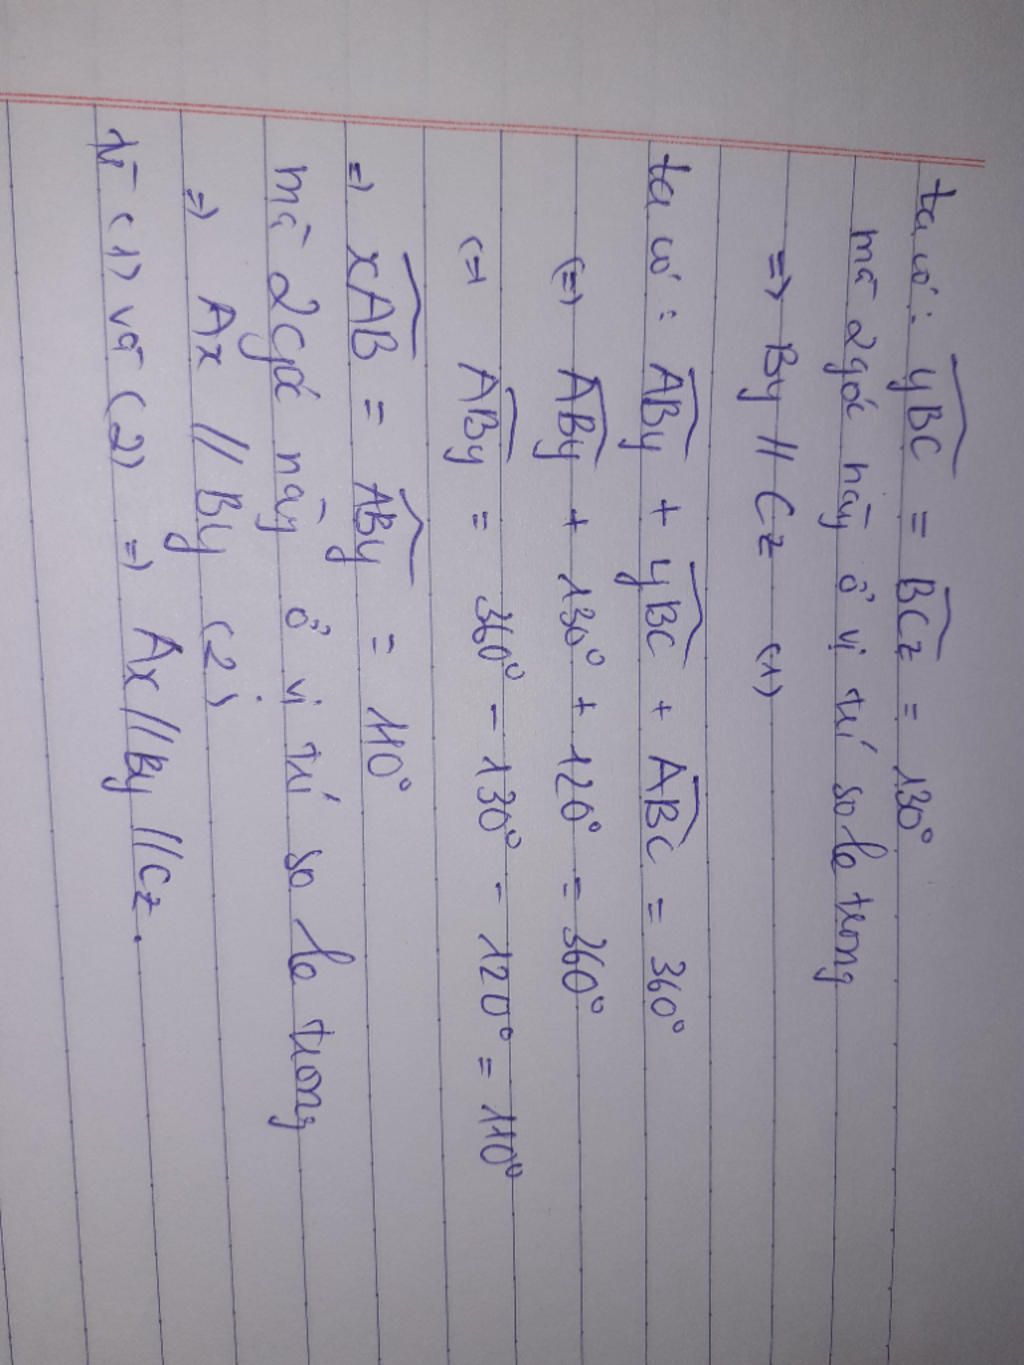 ta có: yBC = BCz = 130°
mà 2 góc này ở vị trí so le trong
=> By // Cz (1)
ta có: ABy + yBC + ABC = 360°
(=) ABy + 130° + 120° = 360°
(=) ABy = 360° - 130° - 120° = 110°
=) xAB = ABy = 110°
mà 2 góc này ở vị trí so le trong
=) Ax // By (2)
từ (1) và (2) =) Ax // By // Cz.